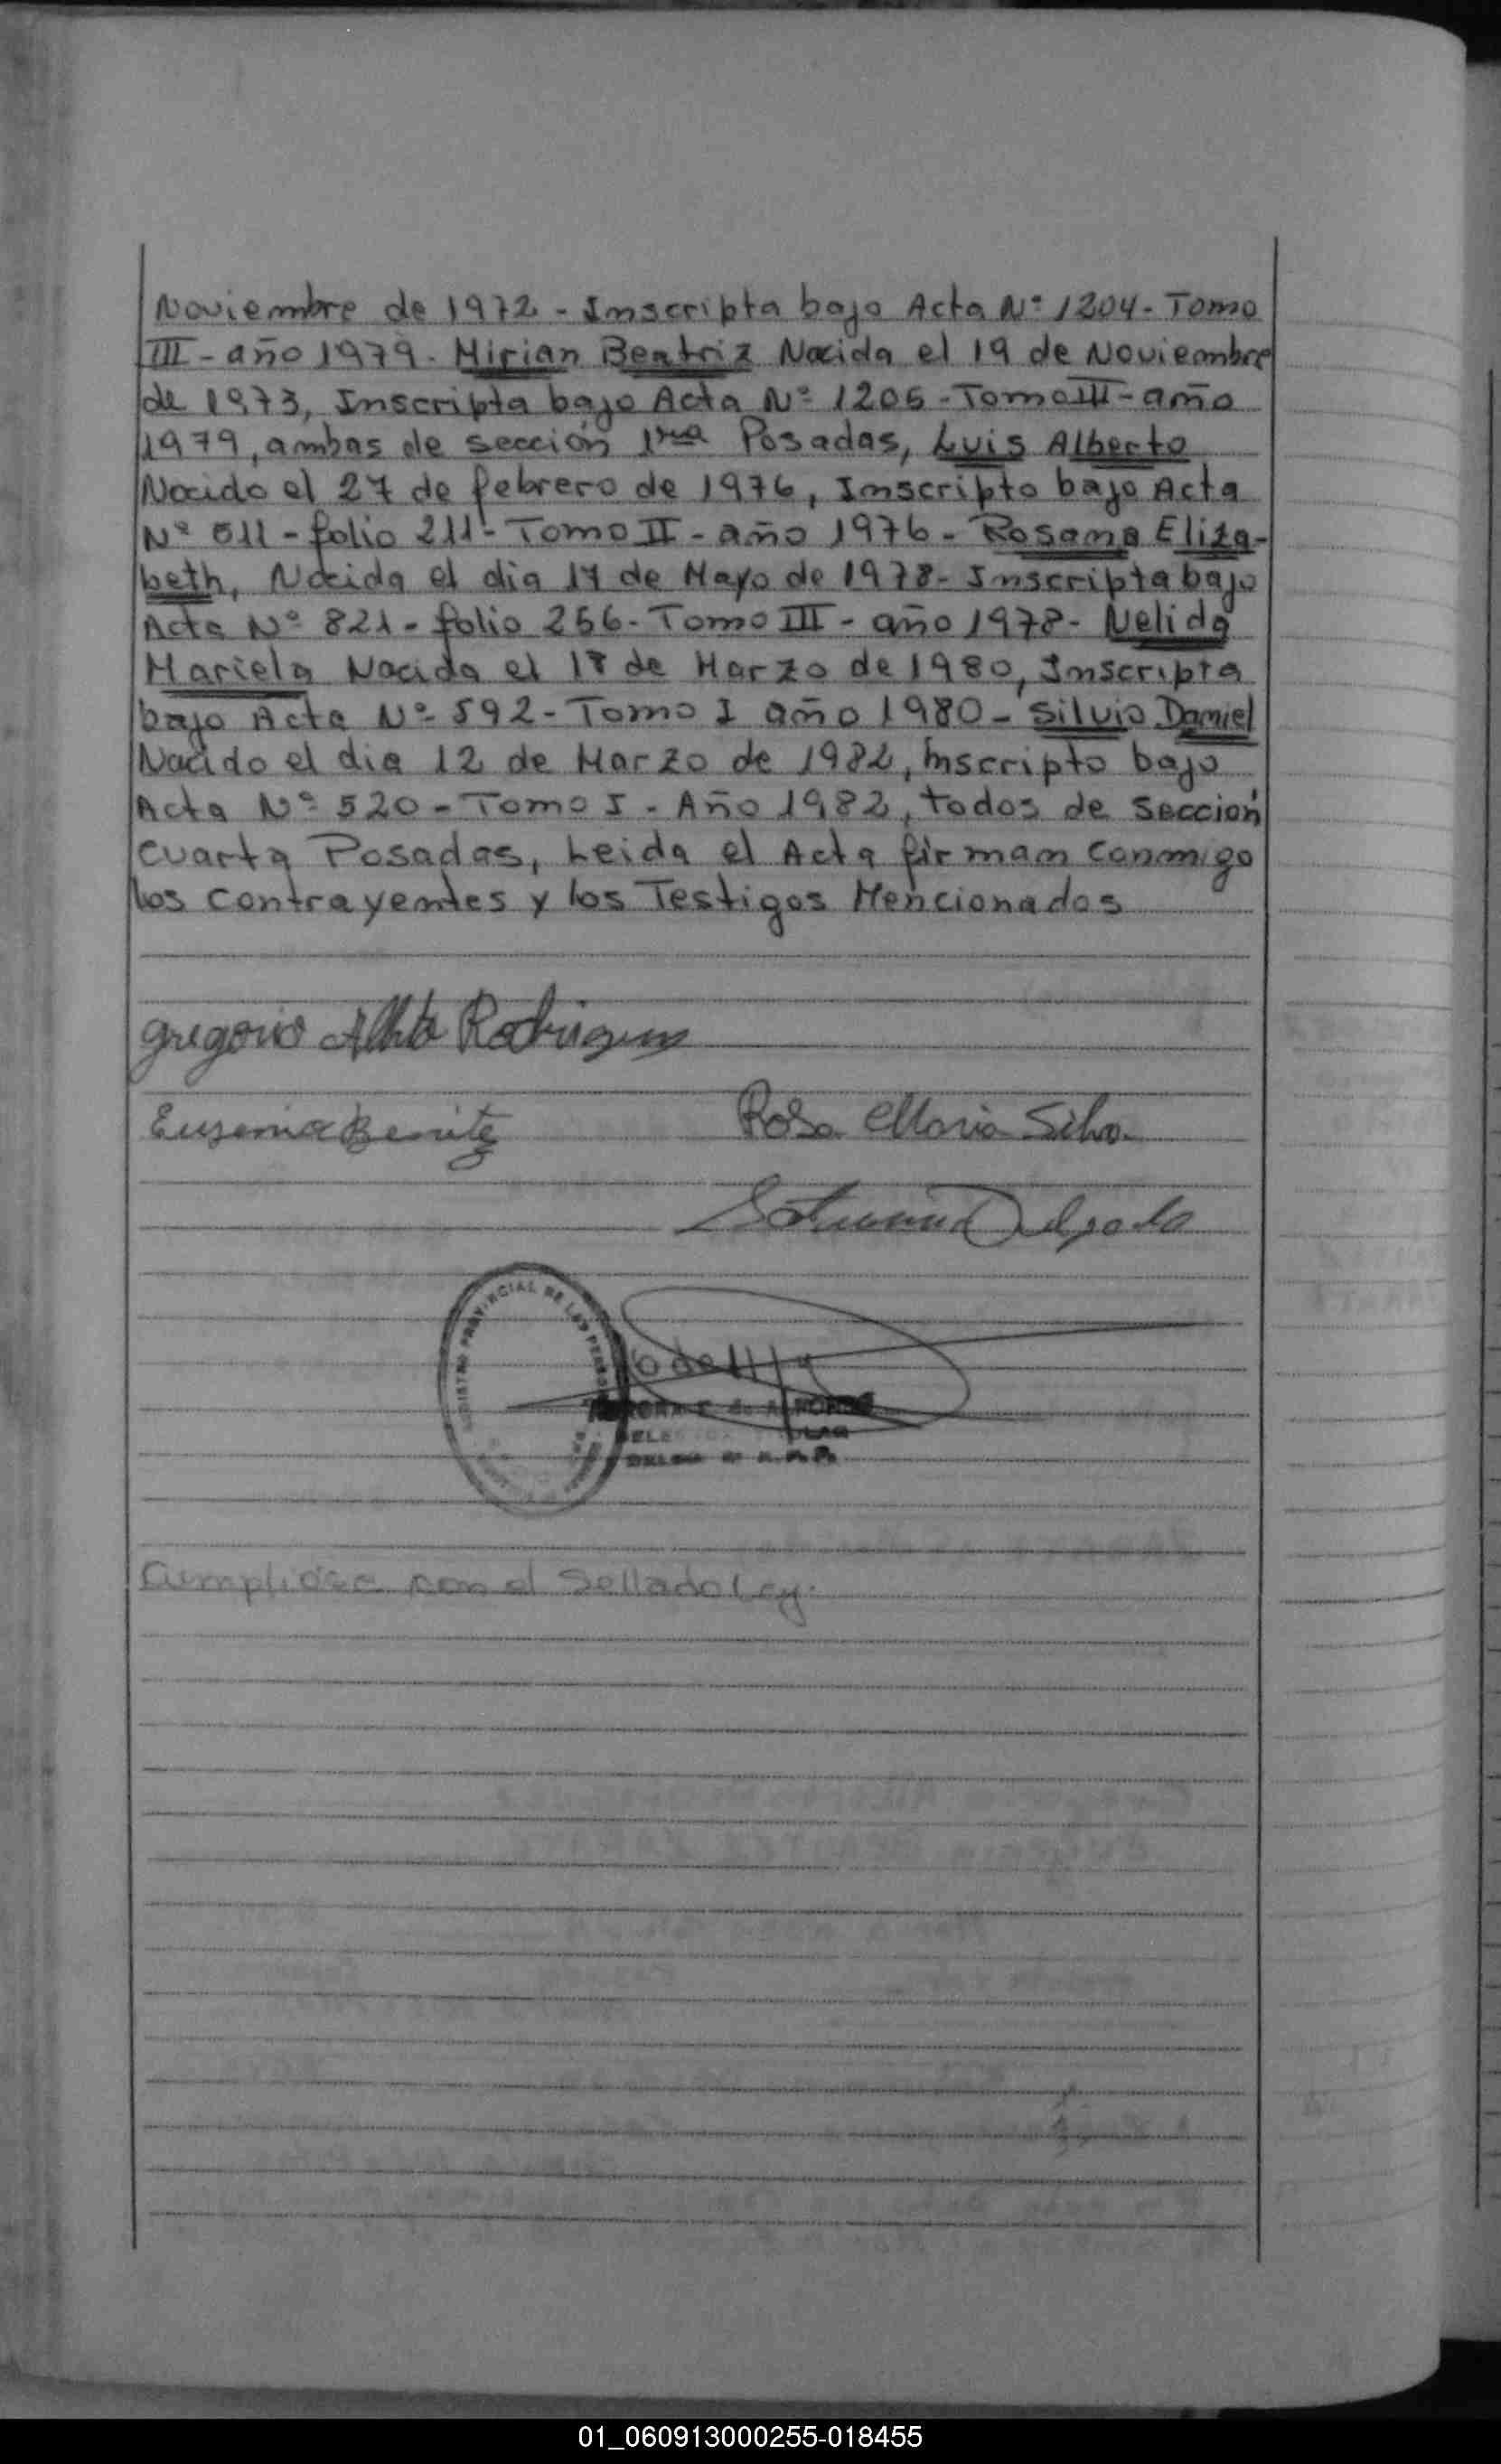 Noviembre de 1972 - Inscripta bajo Acta Nº 1204 - Tomo
III - año 1979 - Mirian Beatriz Nacida el 19 de Noviembre
de 1973, Inscripta bajo Acta Nº 1205 - Tomo III - año
1979, ambas de sección 1ra Posadas, Luis Alberto
Nacido el 27 de febrero de 1976, Inscripto bajo Acta
Nº 511 - folio 211 - Tomo II - año 1976 - Rosana Eliza-
beth, Nacida el dia 17 de Mayo de 1978 - Inscripta bajo
Acta Nº 821 - folio 256 - Tomo III - año 1978 - Nelida
Mariela Nacida el 18 de Marzo de 1980, Inscripta
bajo Acta Nº 592 - Tomo I año 1980 - Silvio Daniel
Nacido el dia 12 de Marzo de 1982, Inscripto bajo
Acta Nº 520 - Tomo I - Año 1982, todos de Sección
Cuarta Posadas, Leida el Acta firman conmigo
los contrayentes y los Testigos Mencionados
Gregorio Alberto Rodriguez
Eugenia Benitez Rosa Maria Silva
Delgado
PROVINCIAL DE LAS
Cumpliose con el Sellado Ley.
01_060913000255-018455